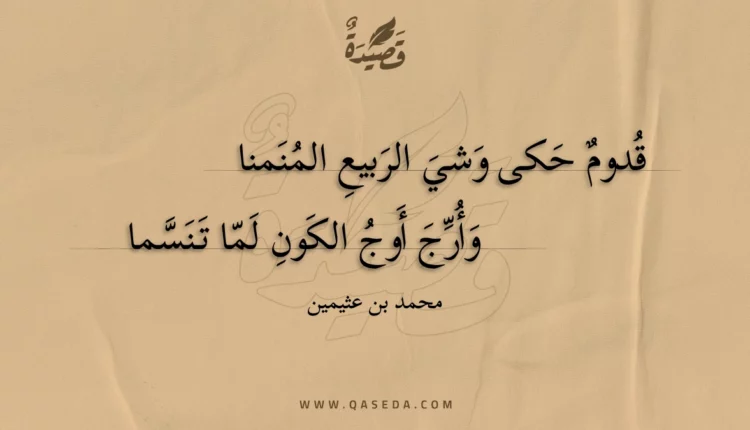 قَصِيدَةٌ
قُدومٌ حَكى وَشيَ الرَبيعِ المُنَمنا
وَأُرِّجَ أَوجُ الكَونِ لَمّا تَنَسَّما
محمد بن عثيمين
WWW.QASEDA.COM